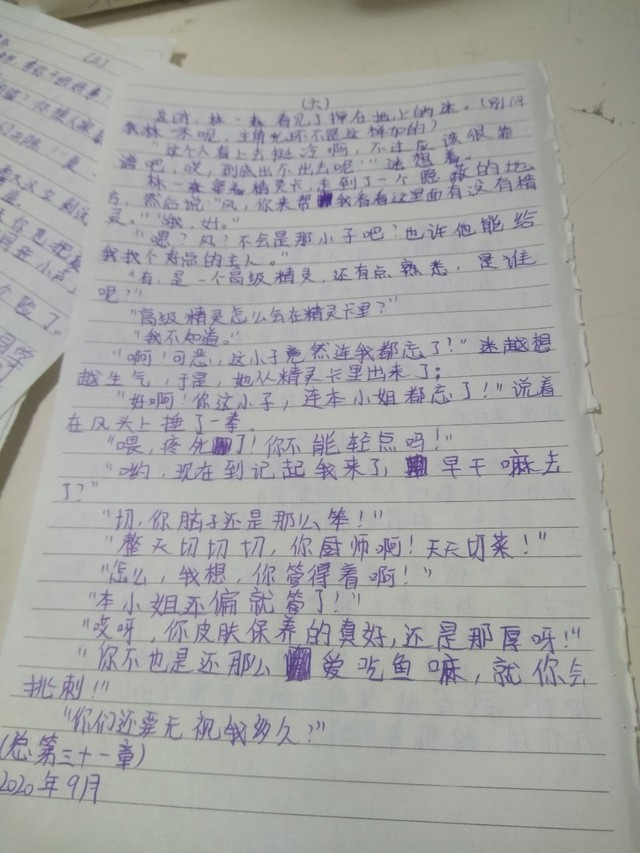 (六)
这时，林一教看见了掉在地上的迷。(别问
我林一来呢，主角光环不是这样加的)
"这个人看上去挺冷啊，不过应该很靠
谱吧，哎，到底出不出去呢"迷想着。
林一拿着精灵卡，走到了一个隐蔽的地
方，然后说："风，你来帮我看看这里面有没有精
灵。""哦，好。"
"嗯？风？不会是那小子吧？也许他能给
我找个靠点的主人。"
"有，是一个高级精灵，还有点熟悉，是谁
呢？"
"高级精灵怎么会在精灵卡里？"
"我不知道。"
"啊！可恶，这小子竟然连我都忘了！"迷越想
越生气，于是，她从精灵卡里出来了：
"好啊！你这小子，连本小姐都忘了！"说着
在风头上捶了一拳。
"喂，疼死了！你不能轻点吗！"
"哟，现在到记起我来了，早干嘛去
了？"
"切，你脑子还是那么笨！"
"整天切切切，你厨师啊！天天切菜！"
"怎么，我想，你管得着啊！"
"本小姐还偏就管了！"
"哎呀，你皮肤保养的真好，还是那厚呀！"
"你不也是还那么爱吃鱼嘛，就你会
挑刺！"
"你们还要无视我多久？"
(总第三十一章)
2020年9月
(五)